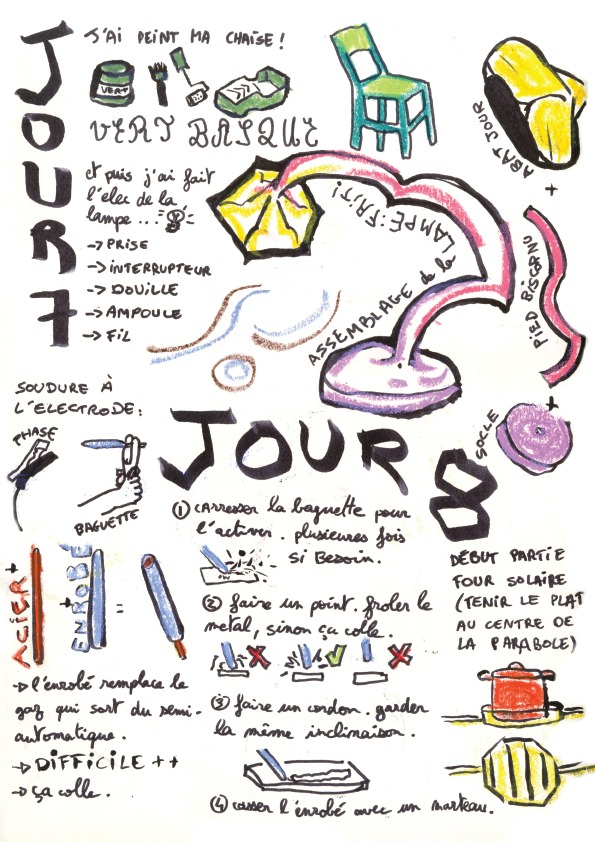 JOUR 7
J'AI PEINT MA CHAISE !
VERT
VERT BASQUE
et puis j'ai fait
l'elec de la
lampe...
-> PRISE
-> INTERRUPTEUR
-> DOUILLE
-> AMPOULE
-> FIL
ASSEMBLAGE de la LAMPE : FAIT !
ABAT JOUR
+
PIED BISCORNU
+
SOCLE
SOUDURE À
L'ELECTRODE :
PHASE
BAGUETTE
ACIER + ENROBÉ =
-> l'enrobé remplace le
gaz qui sort du semi-
automatique.
-> DIFFICILE ++
-> ça colle.
JOUR 8
① CARRESSER la baguette pour
l'activer. plusieures fois
si Besoin.
② faire un point. froler le
metal, sinon ça colle.
③ faire un cordon. garder
la même inclinaison.
④ casser l'enrobé avec un marteau.
DÉBUT PARTIE
FOUR SOLAIRE
(TENIR LE PLAT
AU CENTRE DE
LA PARABOLE)